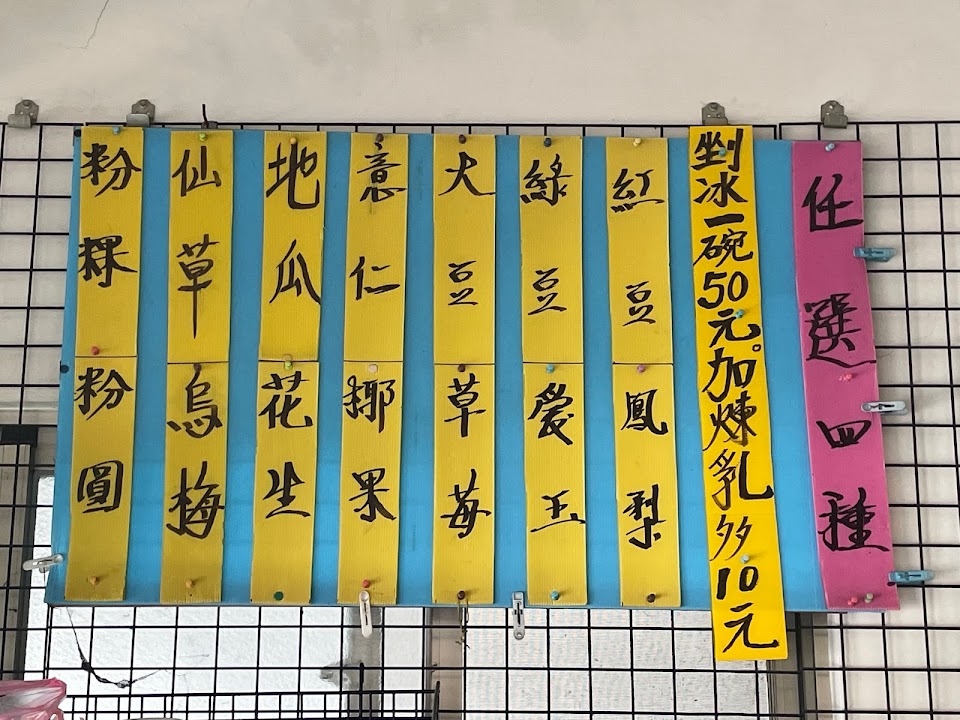 任選四種
剉冰一碗50元加煉乳多10元
紅豆
鳳梨
綠豆
愛玉
大豆
草莓
意仁
椰果
地瓜
花生
仙草
烏梅
粉粿
粉圓